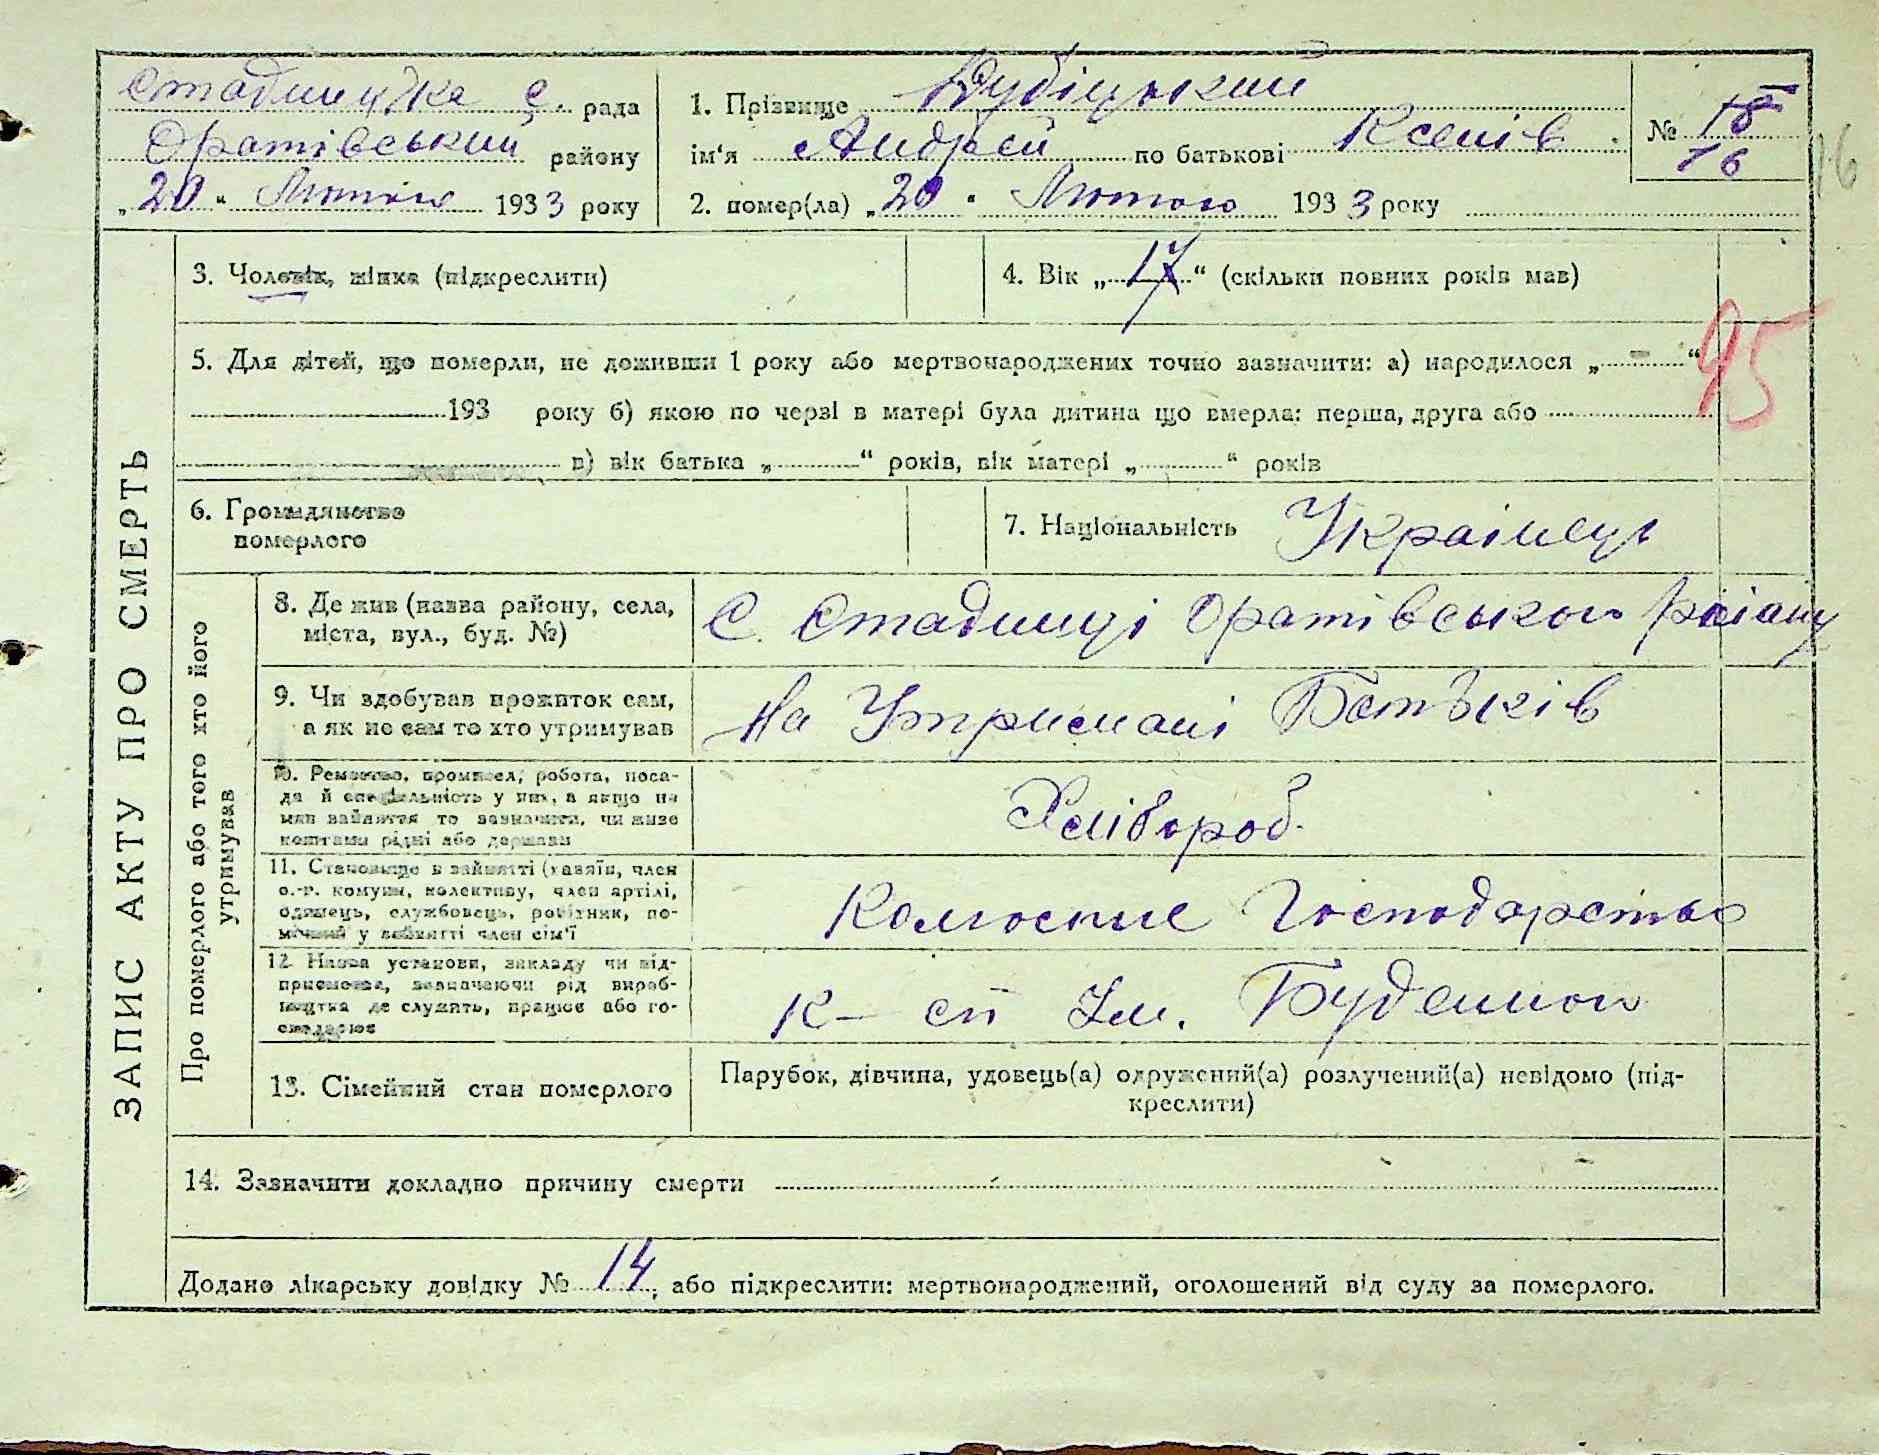 Стадницька с. рада
Оратівський району
„20“ Лютого 1933 року
1. Прізвище Дубіцький
ім‘я Андрей по батькові Ксенів
2. помер(ла) „20“ Лютого 1933 року
№ 15
16
16
ЗАПИС АКТУ ПРО СМЕРТЬ
3. Чоловік, жінка (підкреслити)
4. Вік „17“ (скільки повних років мав)
95
5. Для дітей, що померли, не доживши 1 року або мертвонароджених точно зазначити: а) народилося „ - “
193 року б) якою по черзі в матері була дитина що вмерла: перша, друга або
в) вік батька „ “ років, вік матері „ “ років
6. Громадянство
померлого
7. Національність Українець
Про померлого або того хто його
утримував
8. Де жив (назва району, села,
міста, вул., буд. №)
С. Стадниці Оратівського раіану
9. Чи здобував прожиток сам,
а як не сам то хто утримував
На Утримані Батьків
10. Ремество, промисел, робота, поса-
да й спеціальність у них, а якщо не
мав зайняття то зазначити, чи живе
коштами рідні або держави
Хлібороб.
11. Становище в зайнятті (хазяїн, член
с.-г. комуни, колективу, член артілі,
одинець, службовець, робітник, по-
мічний у зайнятті член сім‘ї
Колгоспне Господарство
12. Назва установи, закладу чи під-
приємства, зазначаючи рід вироб-
ництва де служить, працює або го-
сподарює
К-сп Ім. Буденного
13. Сімейний стан померлого
Парубок, дівчина, удовець(а) одружений(а) розлучений(а) невідомо (під-
креслити)
14. Зазначити докладно причину смерти
Додано лікарську довідку № 14, або підкреслити: мертвонароджений, оголошений від суду за померлого.